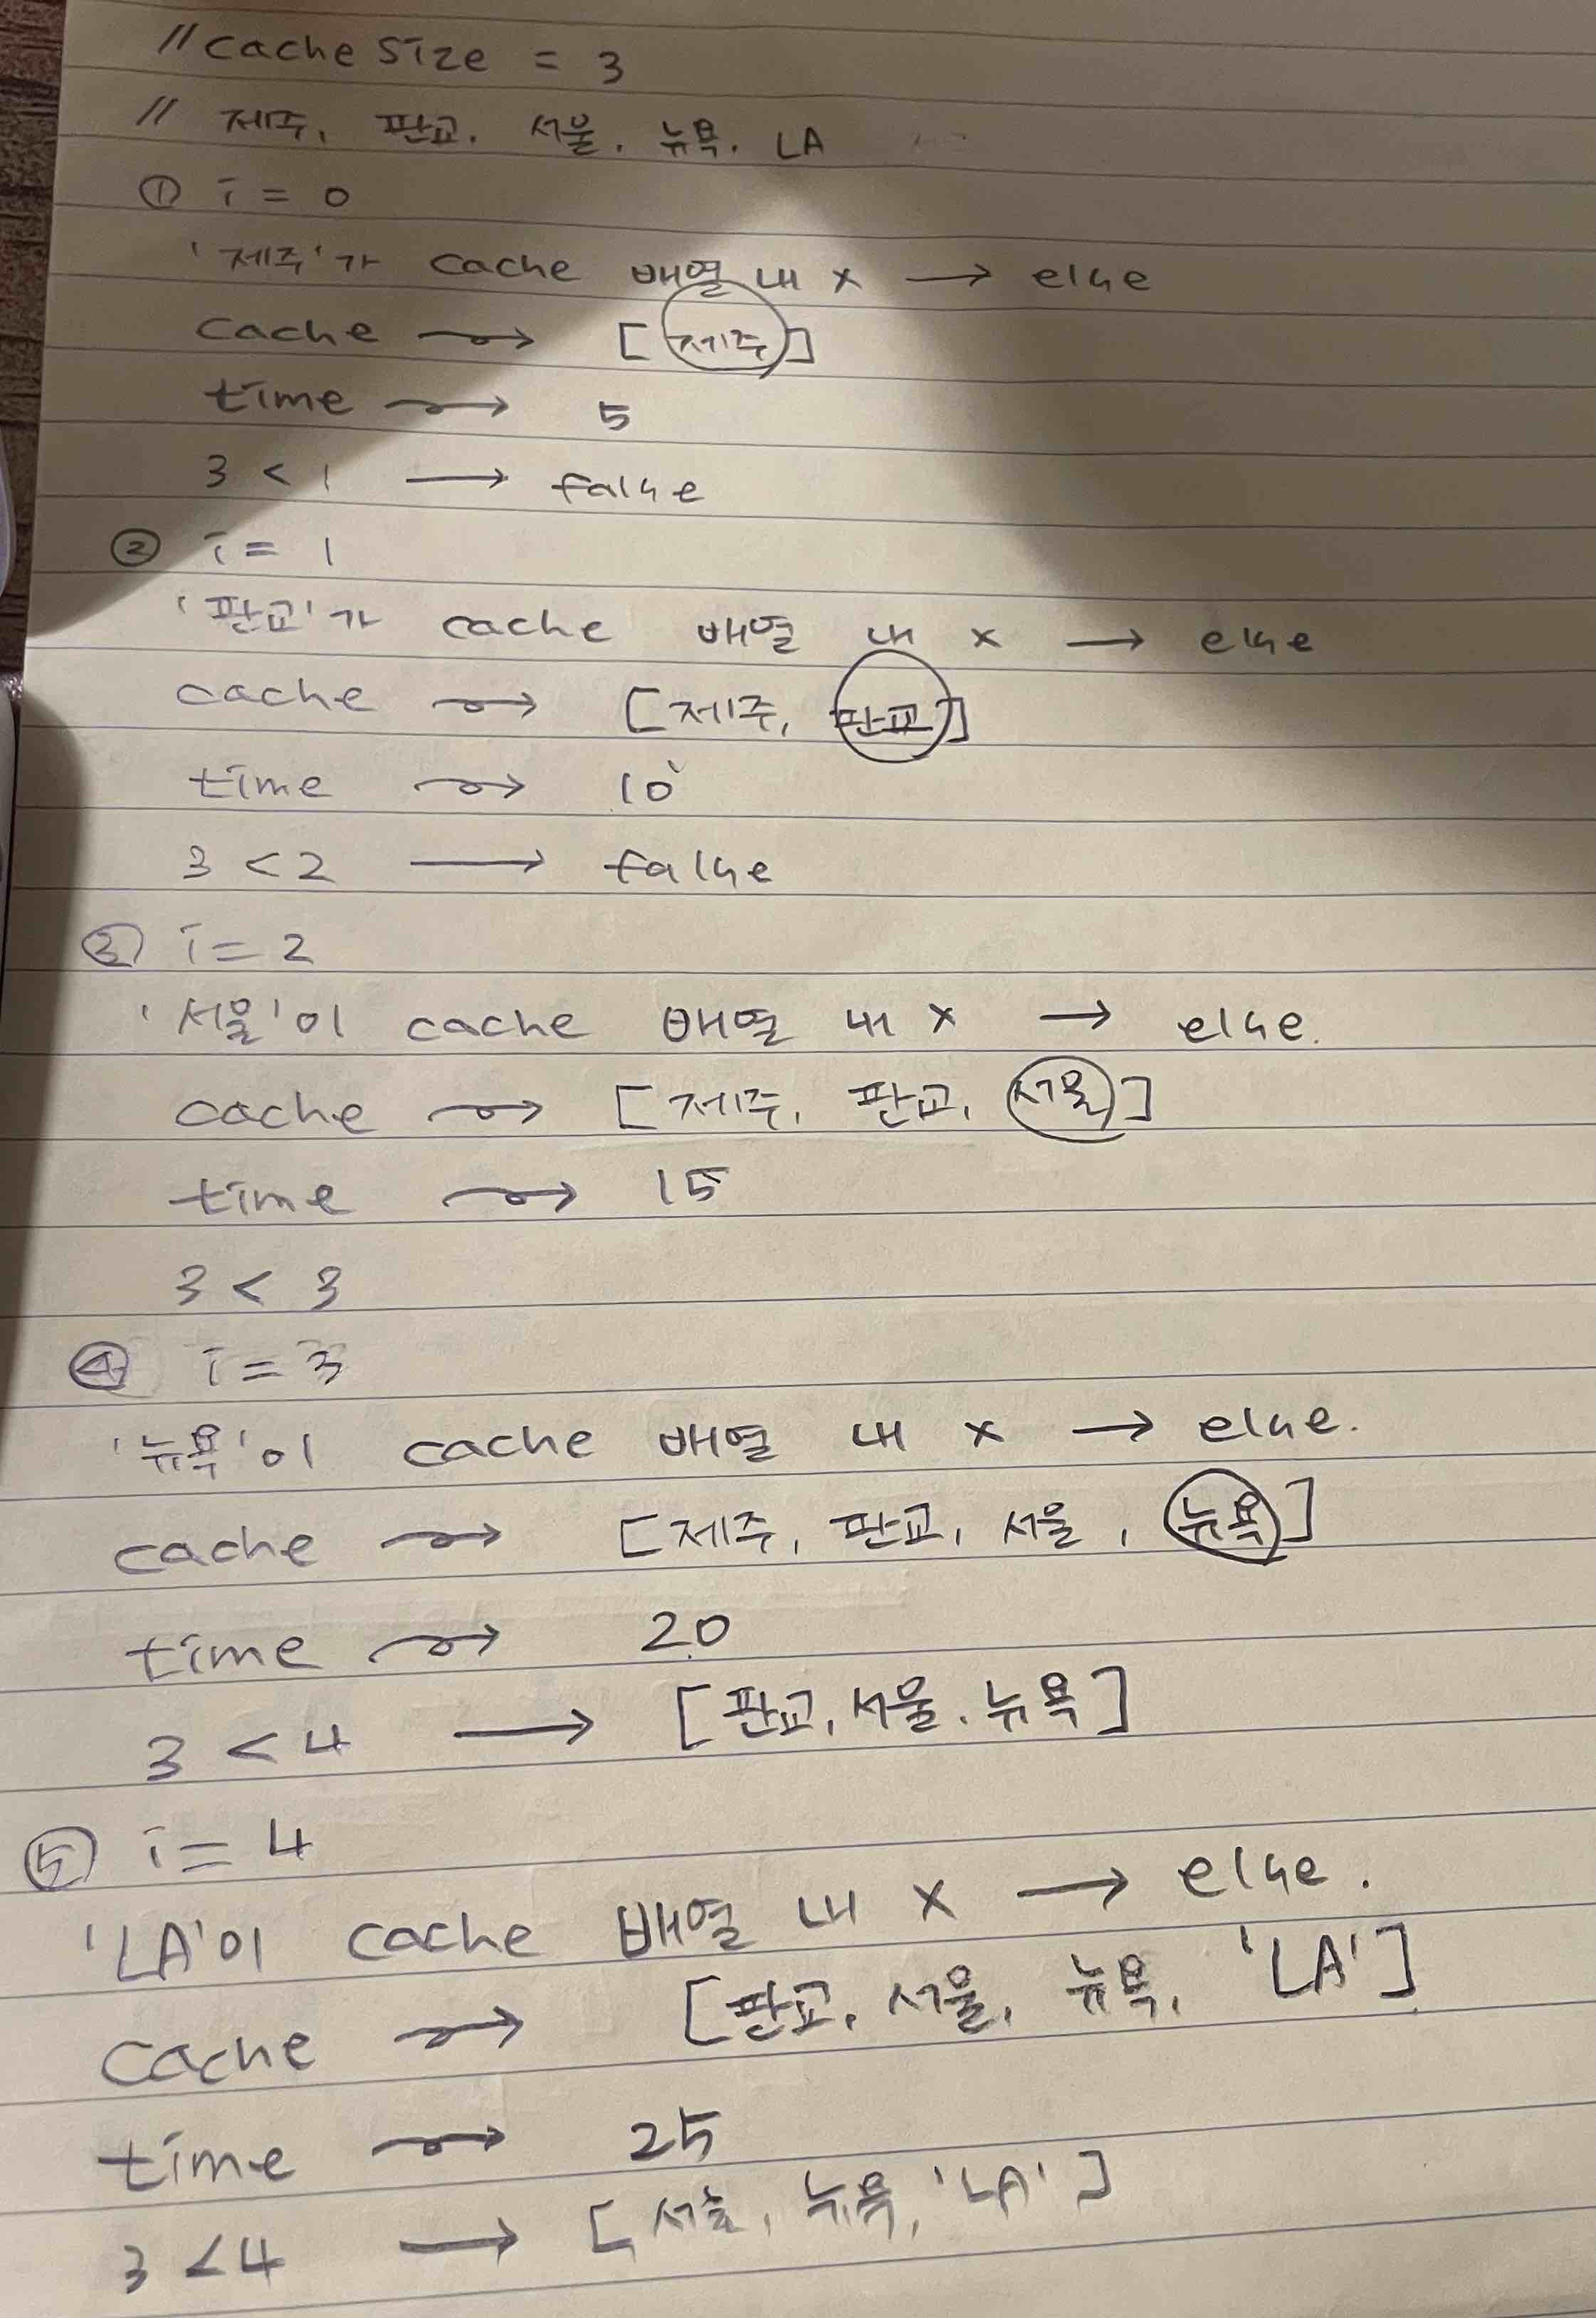 // cache size = 3
// 제주, 판교, 서울, 뉴욕, LA
① i = 0
'제주'가 cache 배열 내 x → else
cache → [제주]
time → 5
3 < 1 → false
② i = 1
'판교'가 cache 배열 내 x → else
cache → [제주, 판교]
time → 10
3 < 2 → false
③ i = 2
'서울'이 cache 배열 내 x → else.
cache → [제주, 판교, 서울]
time → 15
3 < 3
④ i = 3
'뉴욕'이 cache 배열 내 x → else.
cache → [제주, 판교, 서울, 뉴욕]
time → 20
3 < 4 → [판교, 서울, 뉴욕]
⑤ i = 4
'LA'이 cache 배열 내 x → else.
cache → [판교, 서울, 뉴욕, 'LA']
time → 25
3 < 4 → [서울, 뉴욕, 'LA']